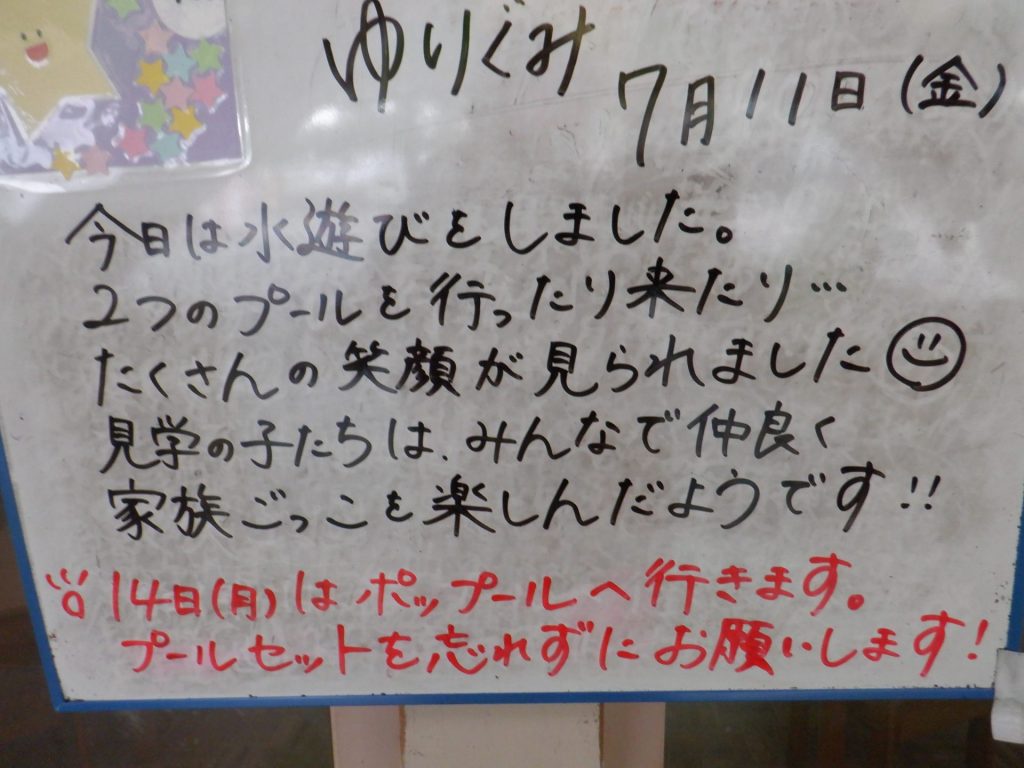 ゆりぐみ
7月11日(金)
今日は水遊びをしました。
2つのプールを行ったり来たり…
たくさんの笑顔が見られました
見学の子たちは、みんなで仲良く
家族ごっこを楽しんだようです!!
14日(月)はポップールへ行きます。
プールセットを忘れずにお願いします!